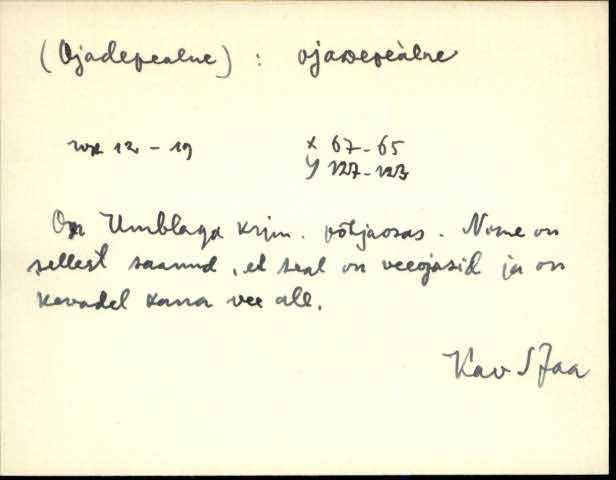 (Ojadepealne) : ojaᴅepeàlne
12 - 19 x 67-65
y 127-123
On Umblaga krjm. põhjaosas. Nime on
sellest saanud, et seal on veeojasid ja on
kevadel kaua vee all.
Kav S Jaa